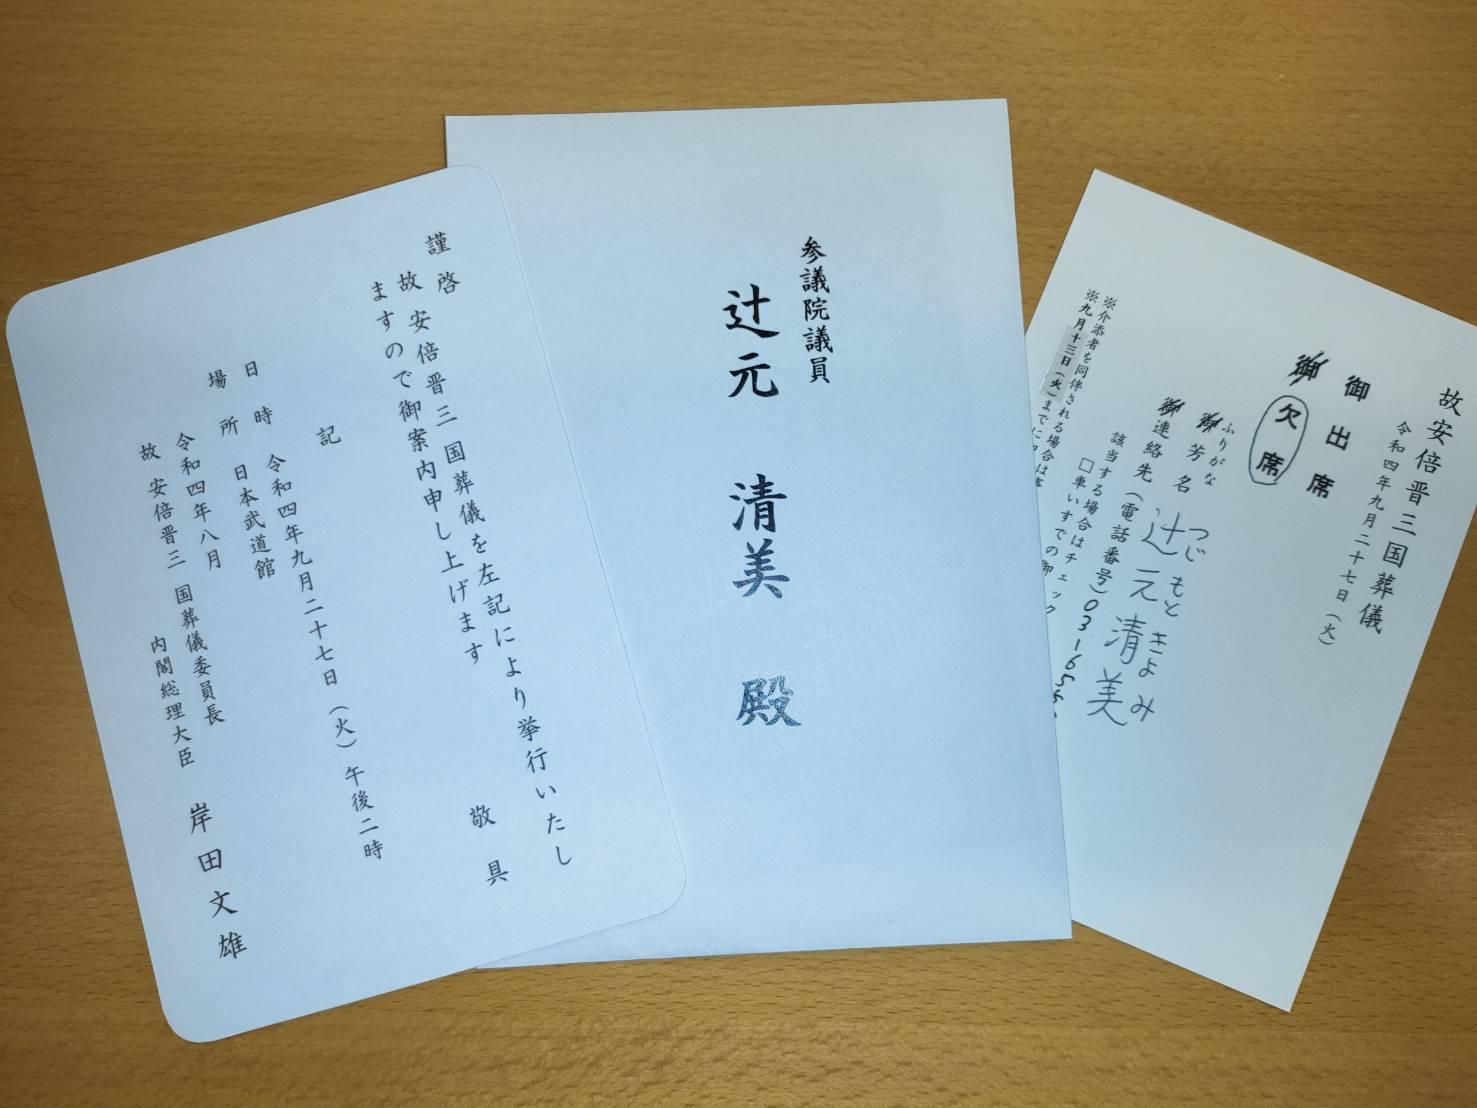 謹啓
故 安倍晋三 国葬儀を左記により挙行いたし
ますので御案内申し上げます
敬具
記
日時 令和四年九月二十七日（火）午後二時
場所 日本武道館
令和四年八月
故 安倍晋三 国葬儀委員長
内閣総理大臣 岸田文雄
参議院議員
辻元 清美 殿
故安倍晋三国葬儀
令和四年九月二十七日（火）
御出席
御欠席
ふりがな つじもと きよみ
御芳名 辻元清美
御連絡先（電話番号）03-165
該当する場合はチェック
□車いすでの御
※介添者を同伴される場合は
※九月十三日（火）までに